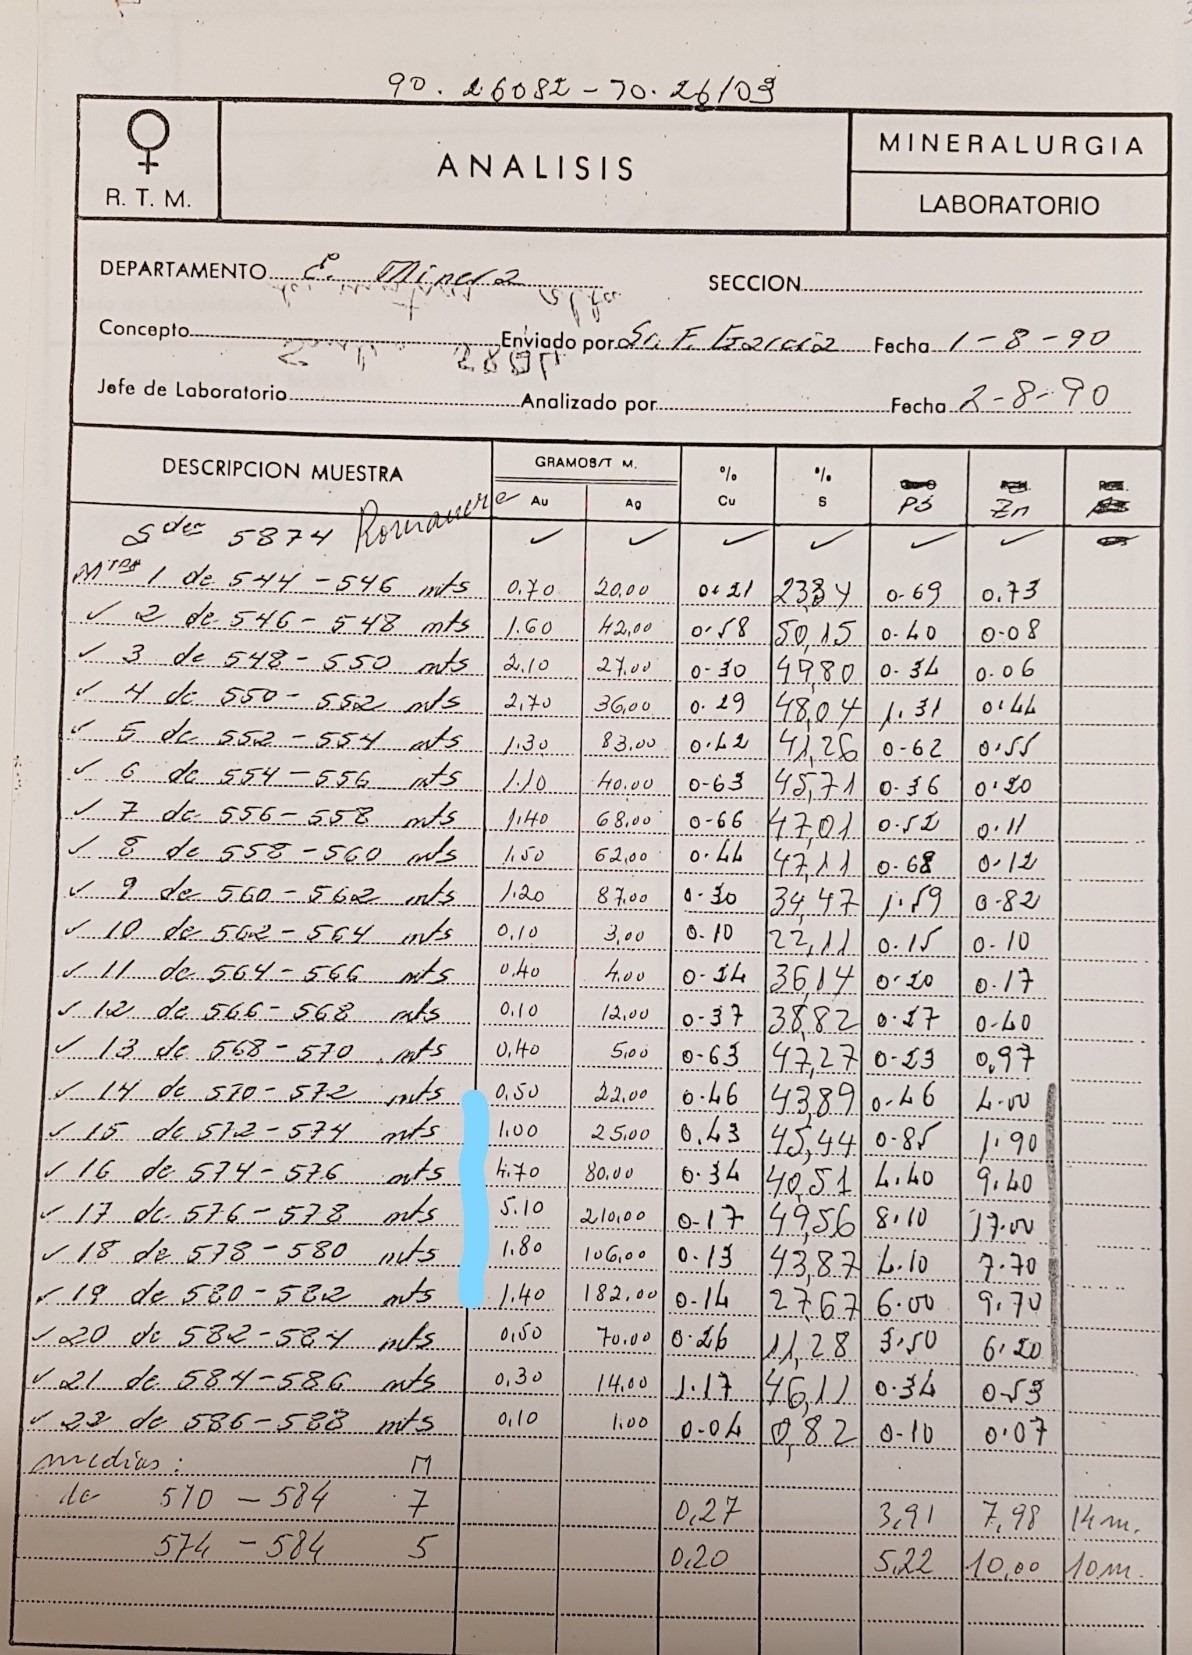 90.26082-90.26103
♀
R. T. M.
ANALISIS
MINERALURGIA
LABORATORIO
DEPARTAMENTO Minera
SECCION
Concepto Enviado por Sr. F. Garcia Fecha 1-8-90
Jefe de Laboratorio Analizado por Fecha 2-8-90
DESCRIPCION MUESTRA GRAMOS/T M. % % Pb Zn
Au Ag Cu S
Sdeo 5874 Romanera ✓ ✓ ✓ ✓ ✓ ✓
Mtra 1 de 544-546 mts 0,70 20,00 0.21 23,84 0.69 0.73
✓ 2 de 546-548 mts 1.60 42,00 0.58 50,15 0.40 0.08
✓ 3 de 548-550 mts 2,10 27,00 0.30 49,80 0.34 0.06
✓ 4 de 550-552 mts 2,70 36,00 0.29 48,04 1.31 0.44
✓ 5 de 552-554 mts 1.30 83,00 0.42 41,26 0.62 0.55
✓ 6 de 554-556 mts 1.10 40.00 0.63 45,71 0.36 0.20
✓ 7 de 556-558 mts 1,40 68,00 0.66 47,01 0.52 0.11
✓ 8 de 558-560 mts 1,50 62,00 0.44 47,11 0.68 0.12
✓ 9 de 560-562 mts 1.20 87,00 0.30 34,47 1.59 0.82
✓ 10 de 562-564 mts 0,10 3,00 0.10 22,11 0.15 0.10
✓ 11 de 564-566 mts 0,40 4,00 0.24 36,14 0.20 0.17
✓ 12 de 566-568 mts 0,10 12,00 0.37 38,82 0.27 0.40
✓ 13 de 568-570 mts 0,40 5,00 0.63 47,27 0.23 0,97
✓ 14 de 570-572 mts 0,50 22,00 0.46 43,89 0.46 4.00
✓ 15 de 572-574 mts 1,00 25,00 0.43 45,44 0.85 1.90
✓ 16 de 574-576 mts 4.70 80,00 0.34 40,51 4.40 9.40
✓ 17 de 576-578 mts 5.10 210,00 0.17 49,56 8.10 17.00
✓ 18 de 578-580 mts 1.80 106,00 0.13 43,87 4.10 7.70
✓ 19 de 580-582 mts 1.40 182,00 0.14 27,67 6.00 9.70
✓ 20 de 582-584 mts 0,50 70,00 0.26 11,28 3.50 6.20
✓ 21 de 584-586 mts 0,30 14,00 1.17 46,11 0.34 0.53
✓ 22 de 586-588 mts 0,10 1,00 0.04 0,82 0.10 0.07
medias: M
de 570-584 7 0,27 3,91 7,98 14 m.
574-584 5 0,20 5,22 10,00 10 m.